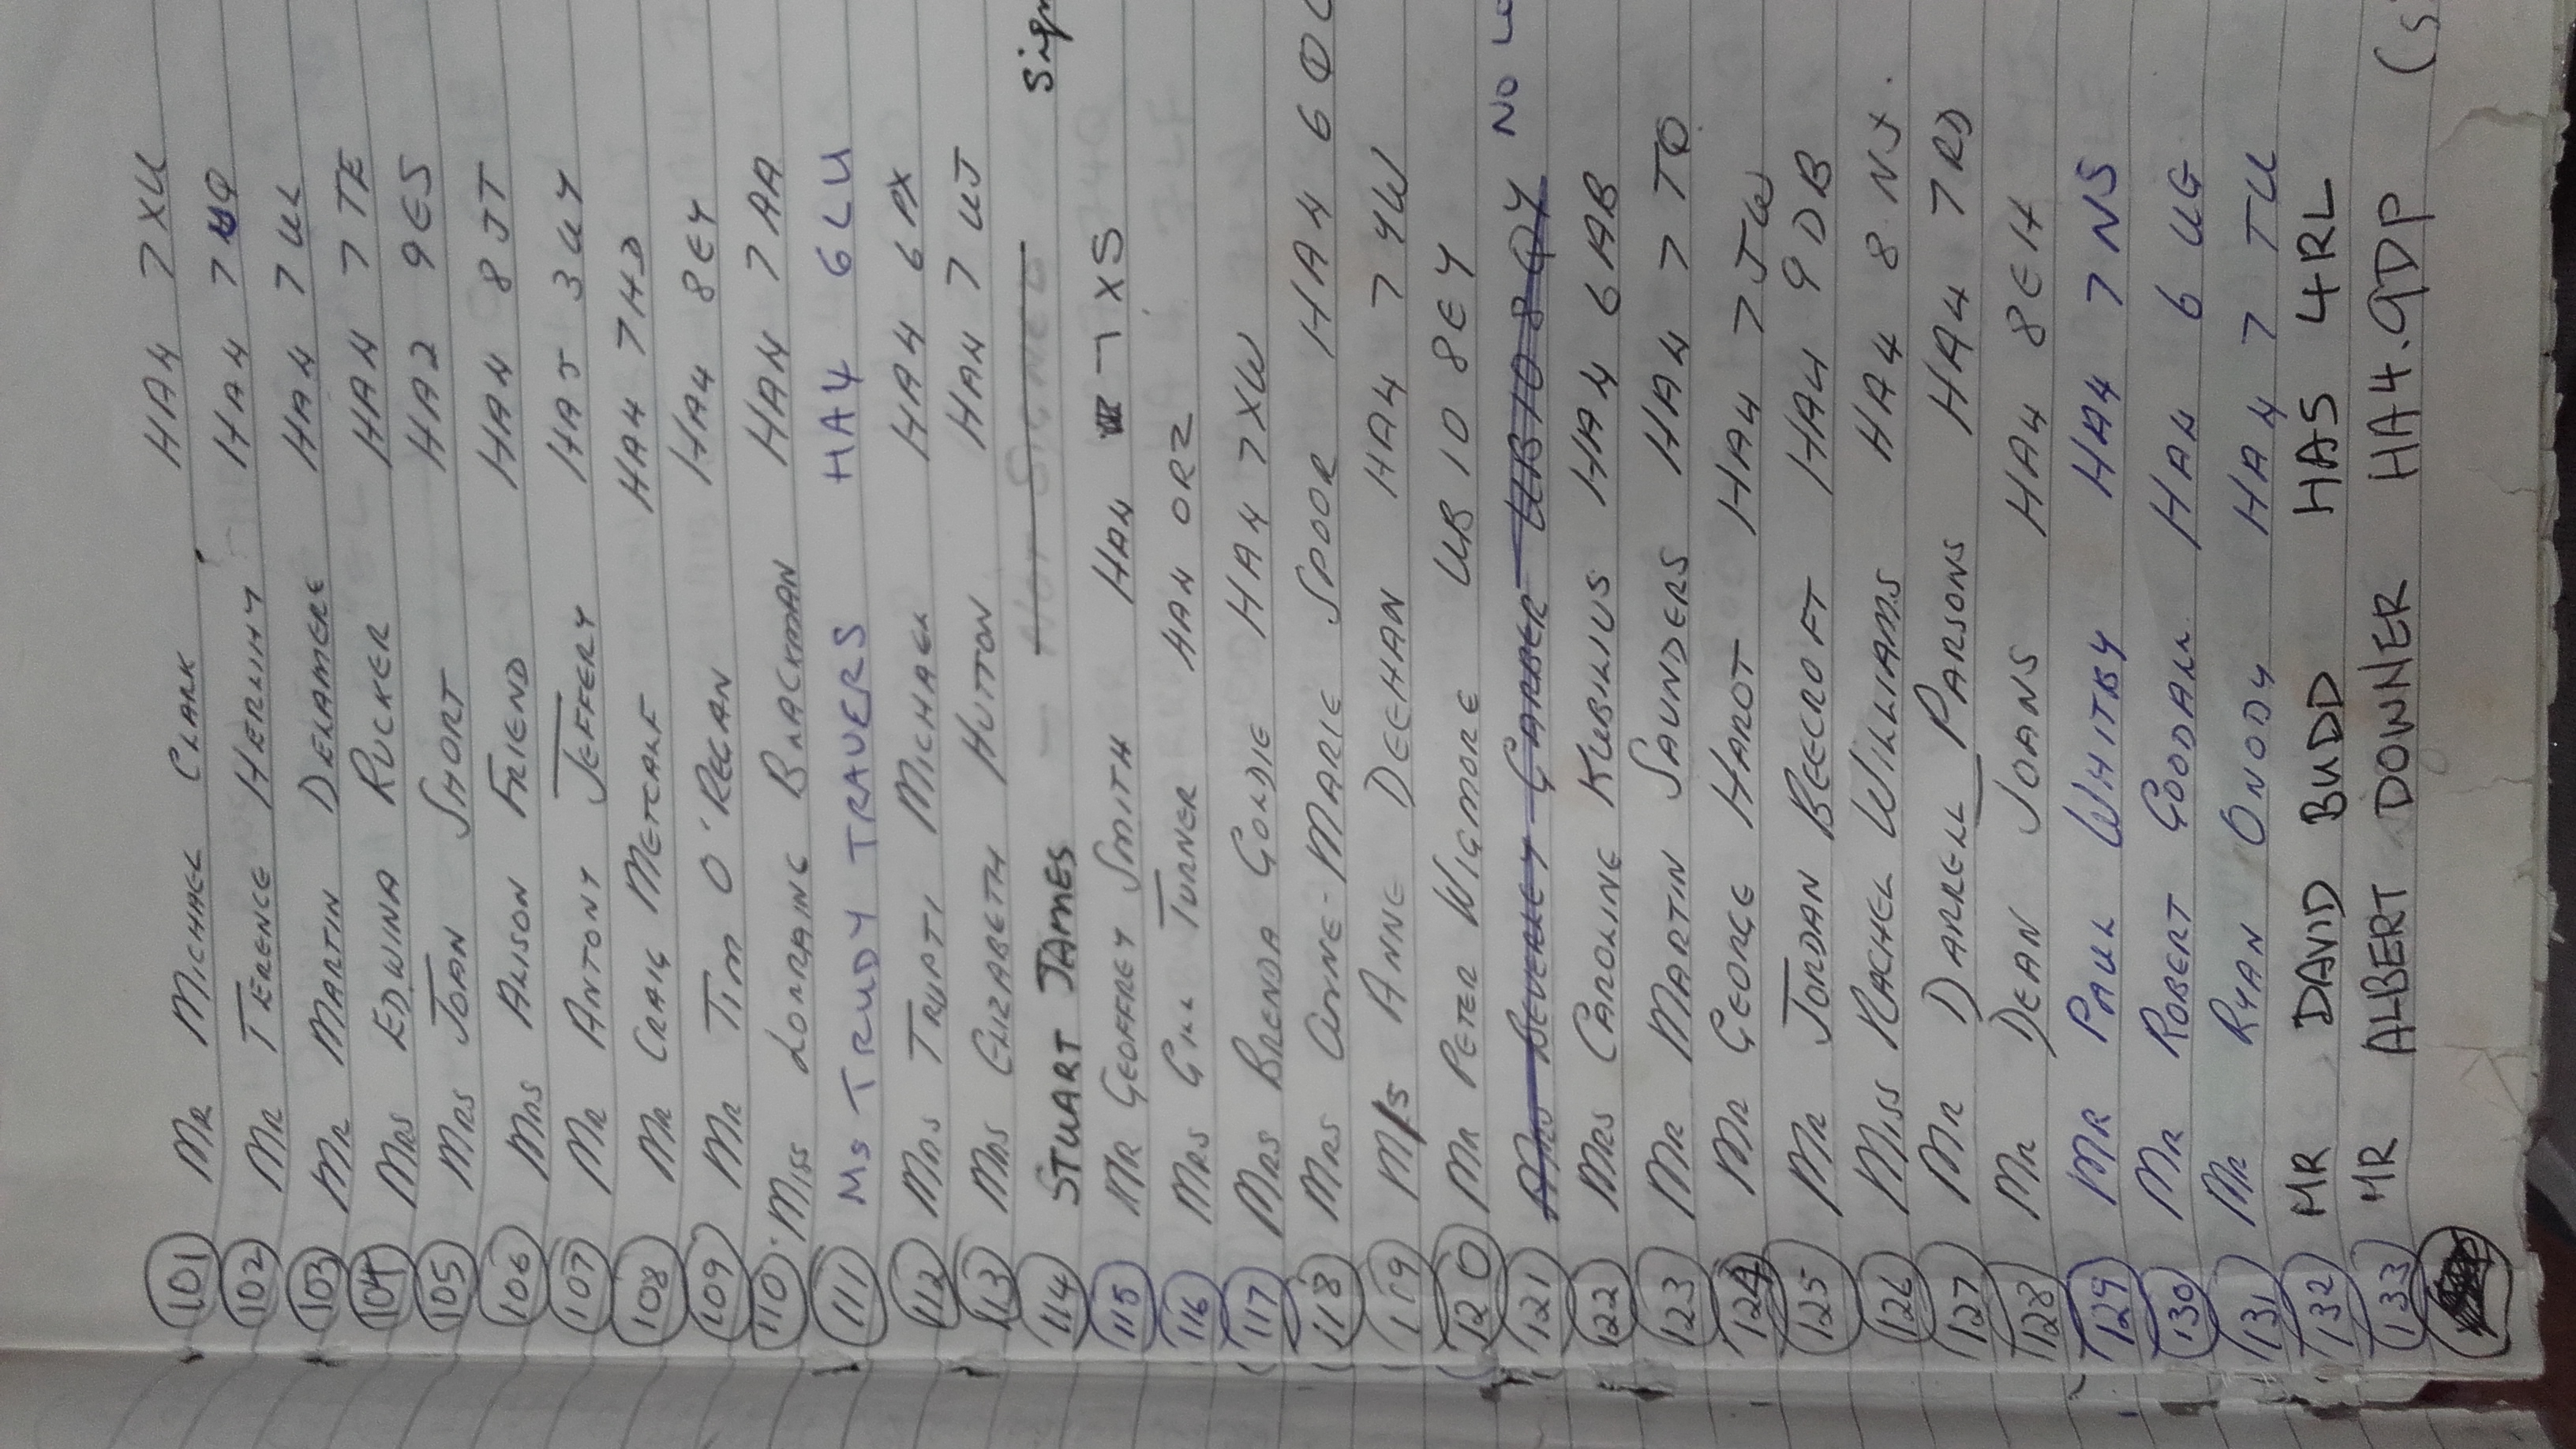 101 MR MICHAEL CLARK HA4 7XU
102 MR TERENCE HERLIHY HA4 7UQ
103 MR MARTIN DELAMERE HA4 7UL
104 MRS EDWINA RUCKER HA4 7TE
105 MRS JOAN SHORT HA2 9ES
106 MRS ALISON FRIEND HA4 8JT
107 MR ANTONY JEFFERY HA5 3UY
108 MR CRAIG METCALF HA4 7HD
109 MR TIM O'REGAN HA4 8EY
110 MISS LORRAINE BLACKMAN HA4 7AA
111 MS TRUDY TRAVERS HA4 6LU
112 MRS TRUPTI MICHAEL HA4 6PX
113 MRS ELIZABETH HUTTON HA4 7UJ
114 STUART JAMES - NOT SIGNED Sign
115 MR GEOFFREY SMITH HA4 7XS
116 MRS GILL TURNER HA4 0RZ
117 MRS BRENDA GOLDIE HA4 7XW
118 MRS ANNE-MARIE SPOOR HA4 6Q
119 M/S ANNE DEEHAN HA4 7YW
120 MR PETER WIGMORE UB10 8EY
121 MRS BEVERLEY GARBER UB10 8QY NO LO
122 MRS CAROLINE KUBILIUS HA4 6AB
123 MR MARTIN SAUNDERS HA4 7TQ
124 MR GEORGE HAROT HA4 7JW
125 MR JORDAN BEECROFT HA4 9DB
126 MISS RACHEL WILLIAMS HA4 8NJ.
127 MR DARRELL PARSONS HA4 7RD
128 MR DEAN JOANS HA4 8EH
129 MR PAUL WHITBY HA4 7NS
130 MR ROBERT GOODALL HA4 6UG
131 MR RYAN ONODY HA4 7TU
132 MR DAVID BUDD HA5 4RL
133 MR ALBERT DOWNER HA4.9DP (s